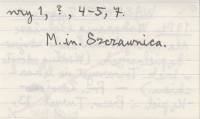 nry 1, ?, 4-5, 7.
M.in. Szczawnica.